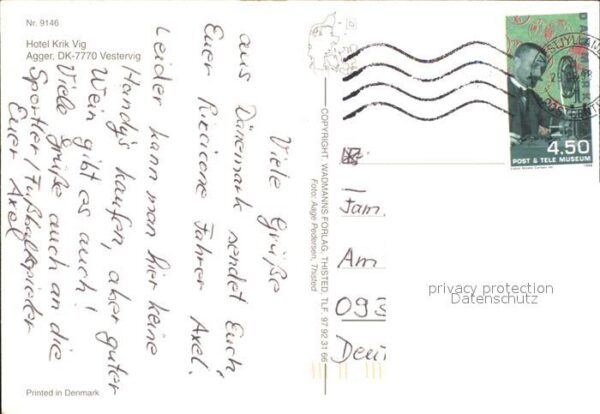 Nr. 9146
Hotel Krik Vig
Agger, DK-7770 Vestervig
Viele Grüße
aus Dänemark sendet Euch,
Euer Riccione Fahrer Axel.
Leider kann man hier keine
Handy's kaufen, aber guter
Wein gibt es auch!
Viele Grüße auch an die
Sportler/Fußballspieler
Euer Axel
Printed in Denmark
COPYRIGHT: WADMANNS FORLAG, THISTED. TLF. 97 92 31 66
Foto: Aage Pedersen, Thisted
DANMARK
4.50
POST & TELE MUSEUM
Fam.
Am
093
Deut
privacy protection
Datenschutz